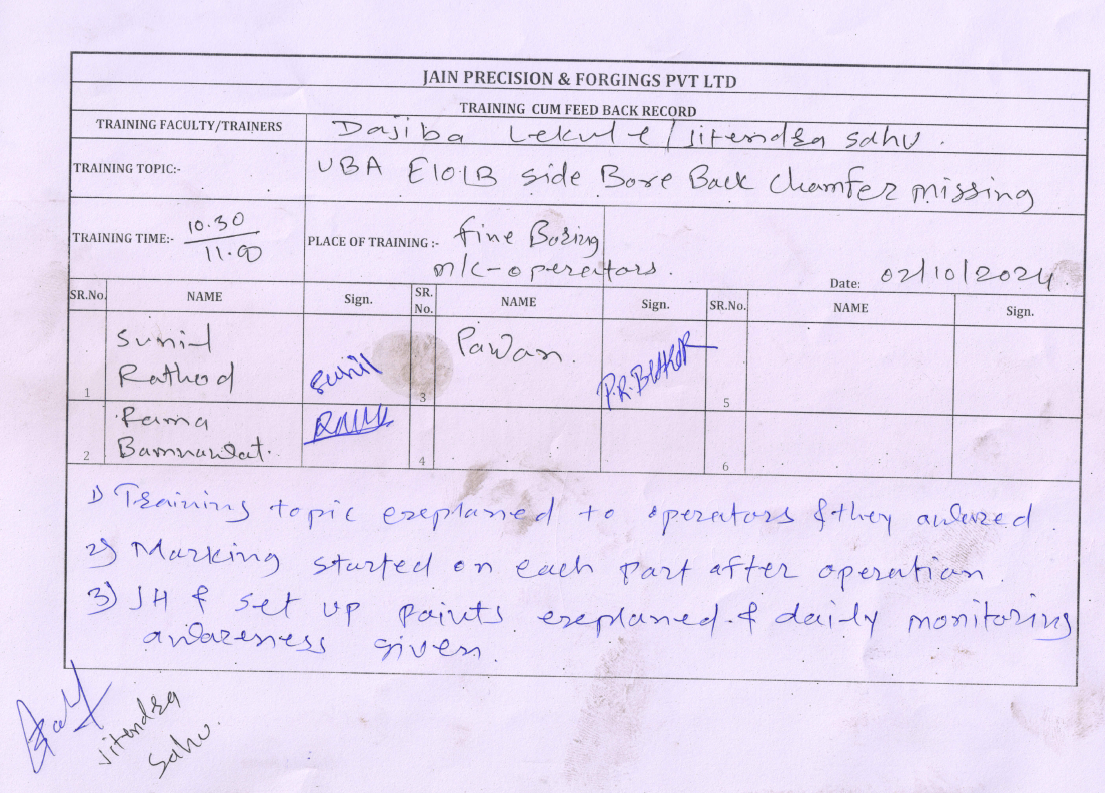 JAIN PRECISION & FORGINGS PVT LTD
TRAINING CUM FEED BACK RECORD
TRAINING FACULTY/TRAINERS Dajiba Lekule / Jitendra Sahu.
TRAINING TOPIC:- UBA E101B side Bore Back chamfer missing
TRAINING TIME:- 10.30
11.00
PLACE OF TRAINING :- fine Boring
m/c-operators.
Date: 02/10/2024
SR.No. NAME Sign. SR. No. NAME Sign. SR.No. NAME Sign.
1 Sunil Rathod Sunil 3 Pawan. P.R. 5
2 Rama 4 6
1) Training topic exeplaned to operators & they awared
2) Marking started on each part after operation.
3) JH & set up points exeplaned & daily monitoring
awareness given.
Jitendra
Sahu.